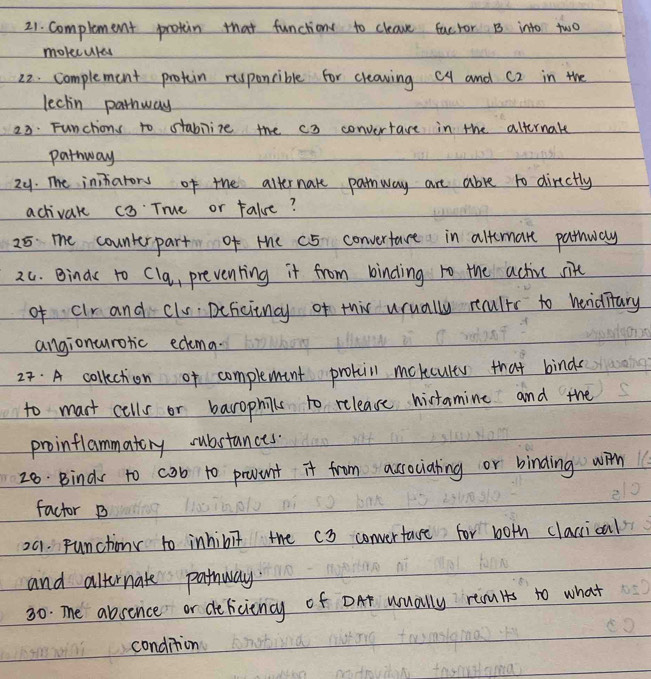 21. Complement protein that functions to cleave factor B into two
molecules
22. Complement protein responcible for cleaving C4 and C2 in the
lectin pathway
23. Functions to stabilize the C3 convertase in the alternate
pathway
24. The initiators of the alternate pathway are able to directly
activate C3. True or False?
25. The counterpart of the C5 convertase in alternate pathway
26. Binds to C1q, preventing it from binding to the active site
of C1r and C1s. Deficiency of this usually results to heriditary
angioneurotic edema.
27. A collection of complement protein molecules that binds
to mast cells or basophills to release histamine and the
proinflammatory substances.
28. Binds to C3b to prevent it from associating or binding with
factor B
29. Functions to inhibit the C3 convertase for both classical
and alternate pathway.
30. The absence or deficiency of DAF usually results to what
condition